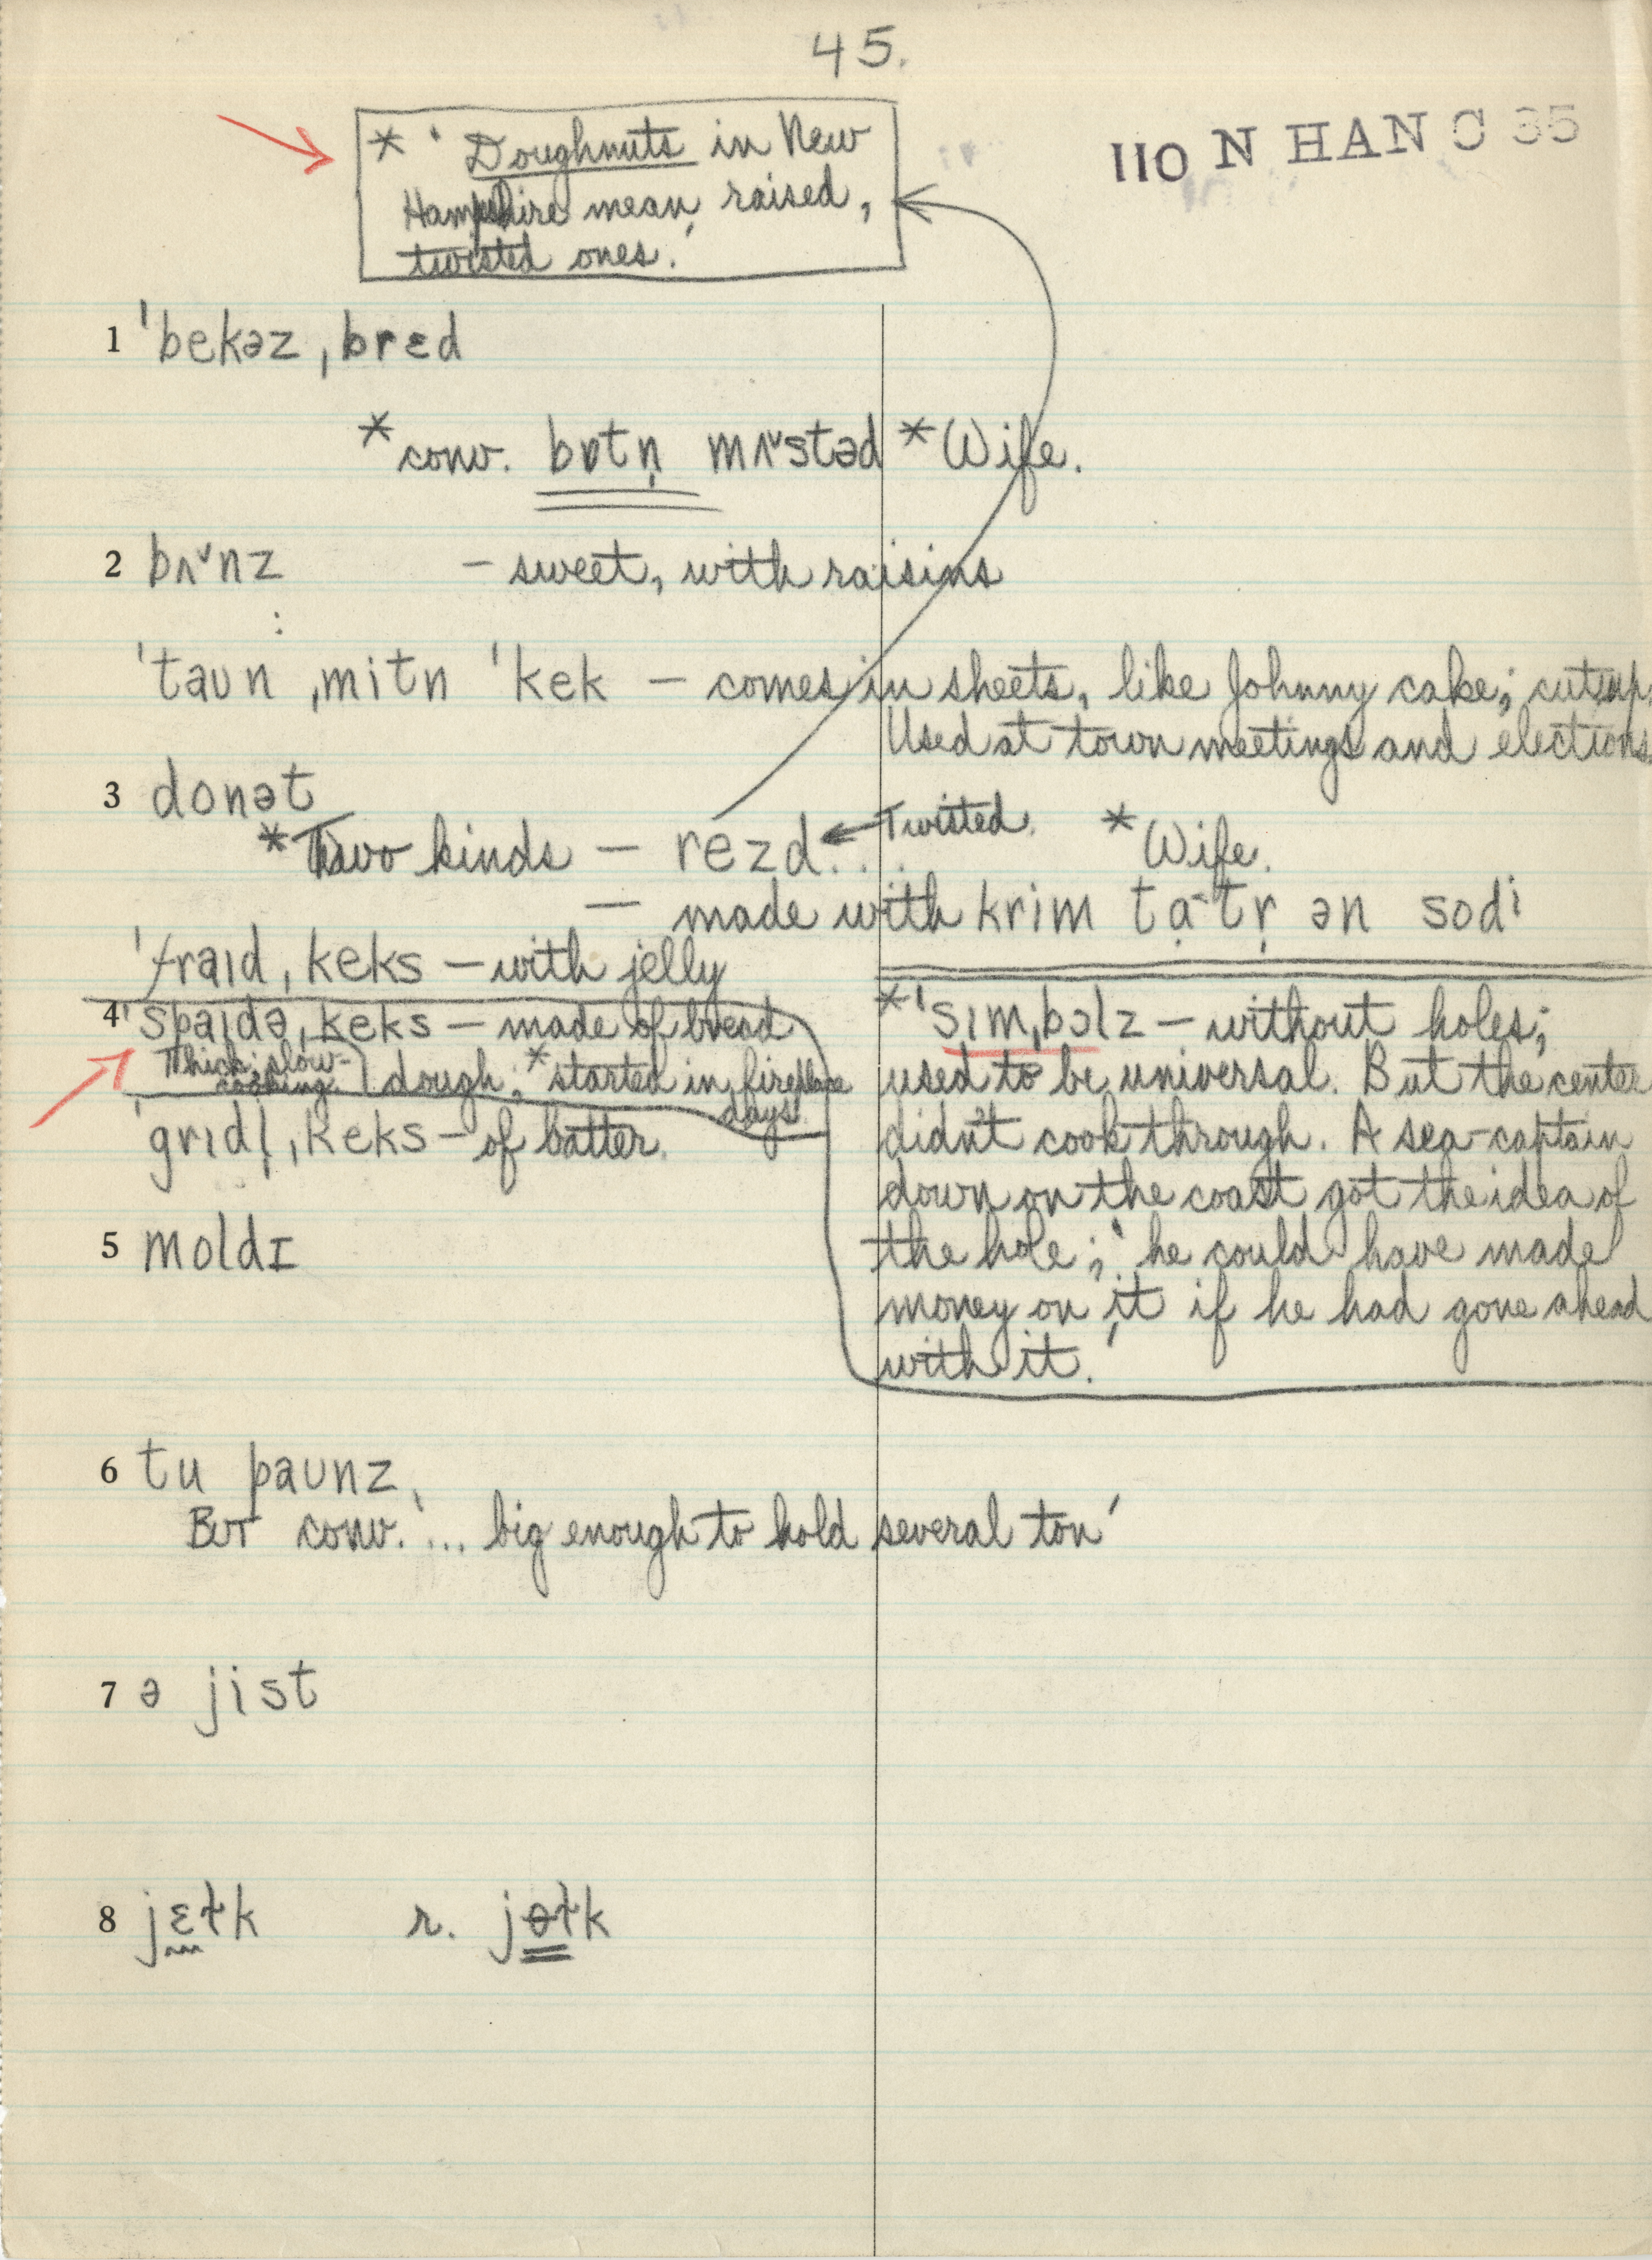 45.
110 N HAN C 35
* ' Doughnuts in New
Hampshire mean raised,
twisted ones.'
1 ˈbekəz ˌbrɛd
*conv. bɒtn̩ mʌ˅stəd *Wife.
2 bʌ˅nz – sweet, with raisins
ˈtaʊn ˌmitn ˈkek – comes in sheets, like Johnny cake; cut up.
Used at town meetings and elections.
3 donət
*Two kinds – rezd... Twisted. *Wife.
– made with krim ta̤tr̩ ən sodi
ˈfraɪd ˌkeks – with jelly
4 ˈspaɪdə ˌkeks – made of bread
Thick; slow-cooking. dough; *started in fireplace days.
ˈgridl̩ ˌkeks – of batter.
*ˈsɪmˌbɔlz – without holes;
used to be universal. But the center
didn't cook through. A sea-captain
down on the coast got the idea of
the hole; 'he could have made
money on it if he had gone ahead
with it.'
5 moldɪ
6 tu paʊnz
But conv. '... big enough to hold several ton'
7 ə jist
8 jɛɫk r. jɵɫk